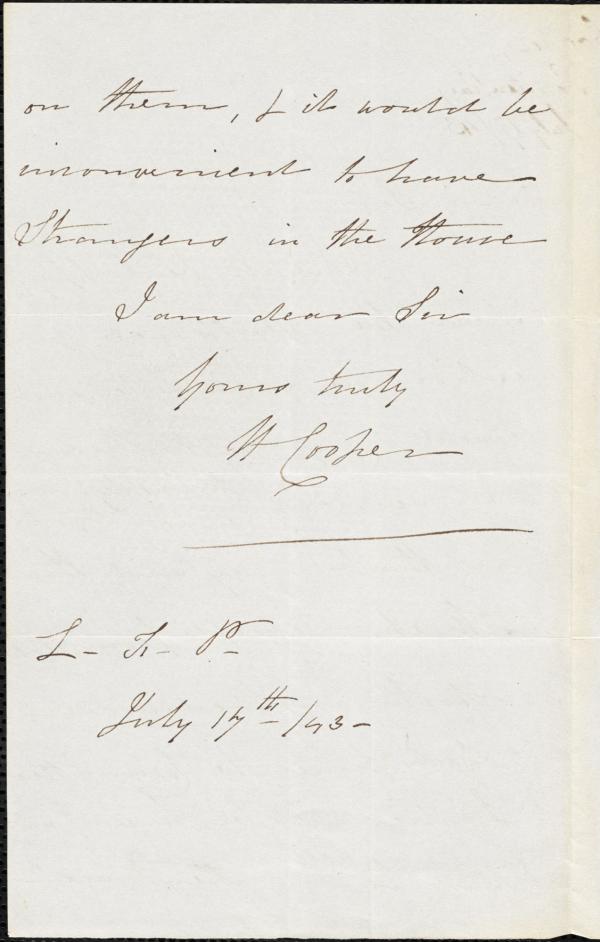 on them, & it would be
inconvenient to have
Strangers in the House
I am dear Sir
Yours truly
H Cooper
L - K - P -
July 17th /43 -